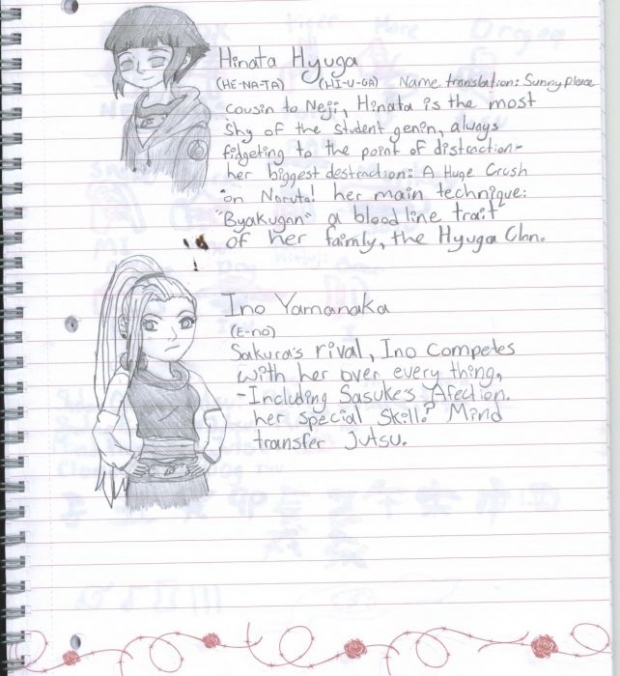 Hinata Hyuga
(HE-NA-TA) (HI-U-GA) Name translation: Sunny place
cousin to Neji, Hinata is the most
shy of the student genin, always
fidgeting to the point of distraction-
her biggest destraction: A Huge Crush
on Naruto! her main technique:
"Byakugan" a blood line trait
of her faimly, the Hyuga Clan.
Ino Yamanaka
(E-no)
Sakura's rival, Ino Competes
with her over every thing,
-Including Sasuke's Afection.
her special Skill? Mind
transfer Jutsu.